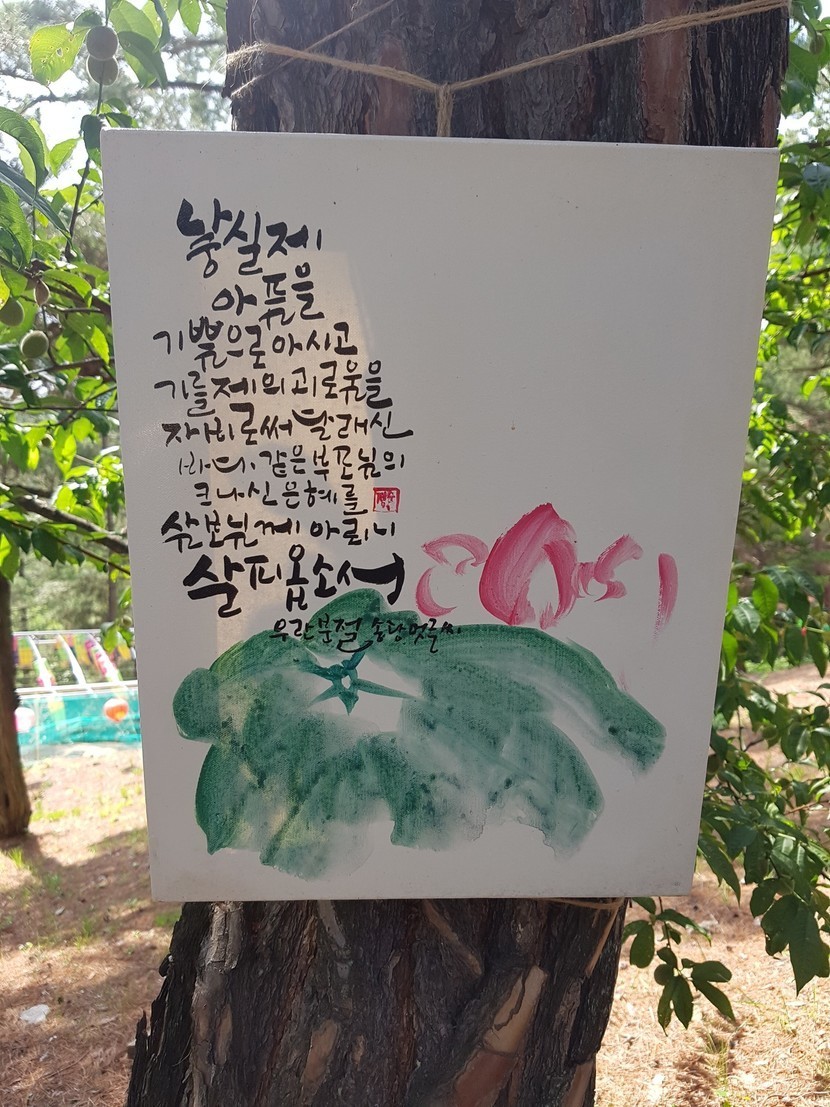 낳실제
아픔을
기쁨으로 아시고
기를제의 괴로움을
자비로써 달래신
바다 같은 부모님의
크나신 은혜를
삼보님께 아뢰니
살피옵소서
우란분절 송당멋글씨